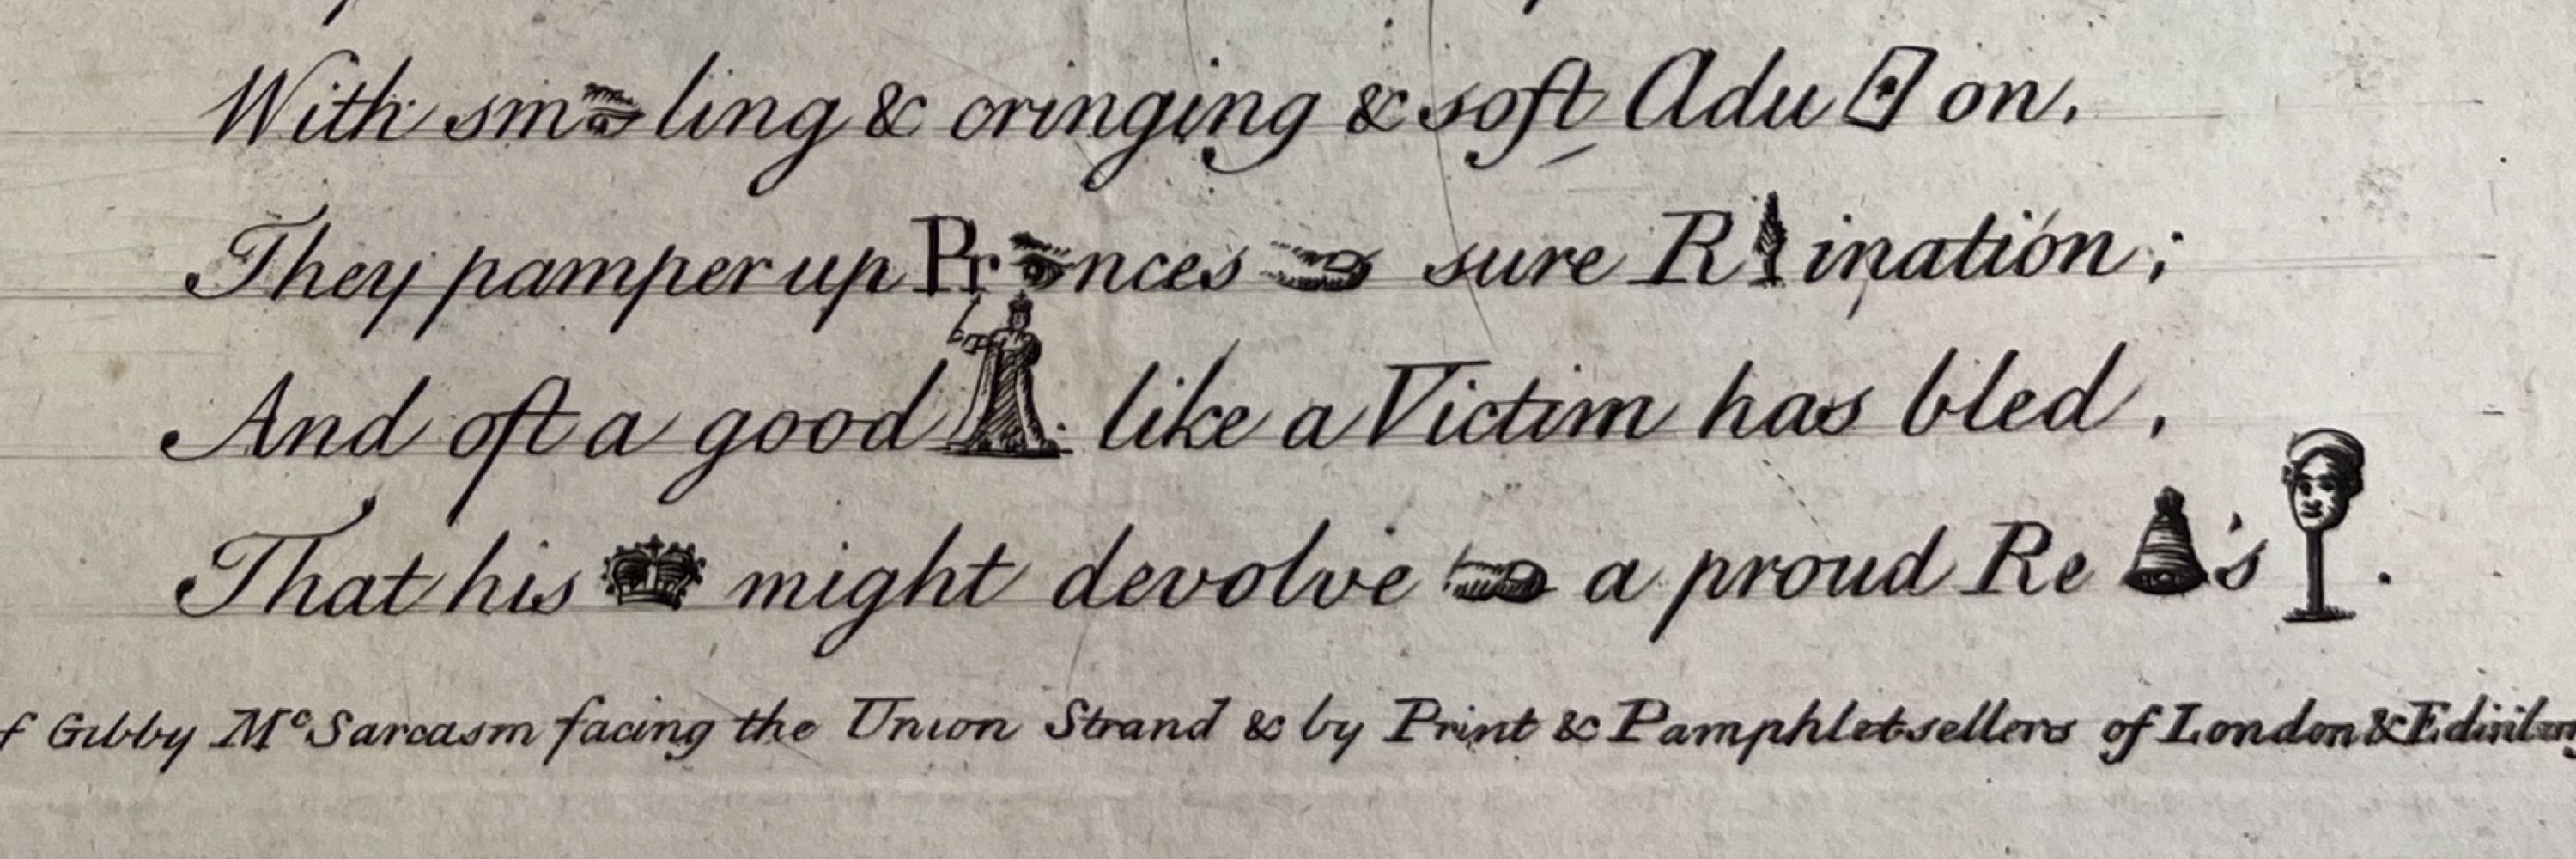 With sm ling & cringing & soft Adu on,
They pamper up Pr nces sure R ination;
And oft a good like a Victim has bled,
That his might devolve a proud Re 's .
f Gibby Mc Sarcasm facing the Union Strand & by Print & Pamphletsellers of London &